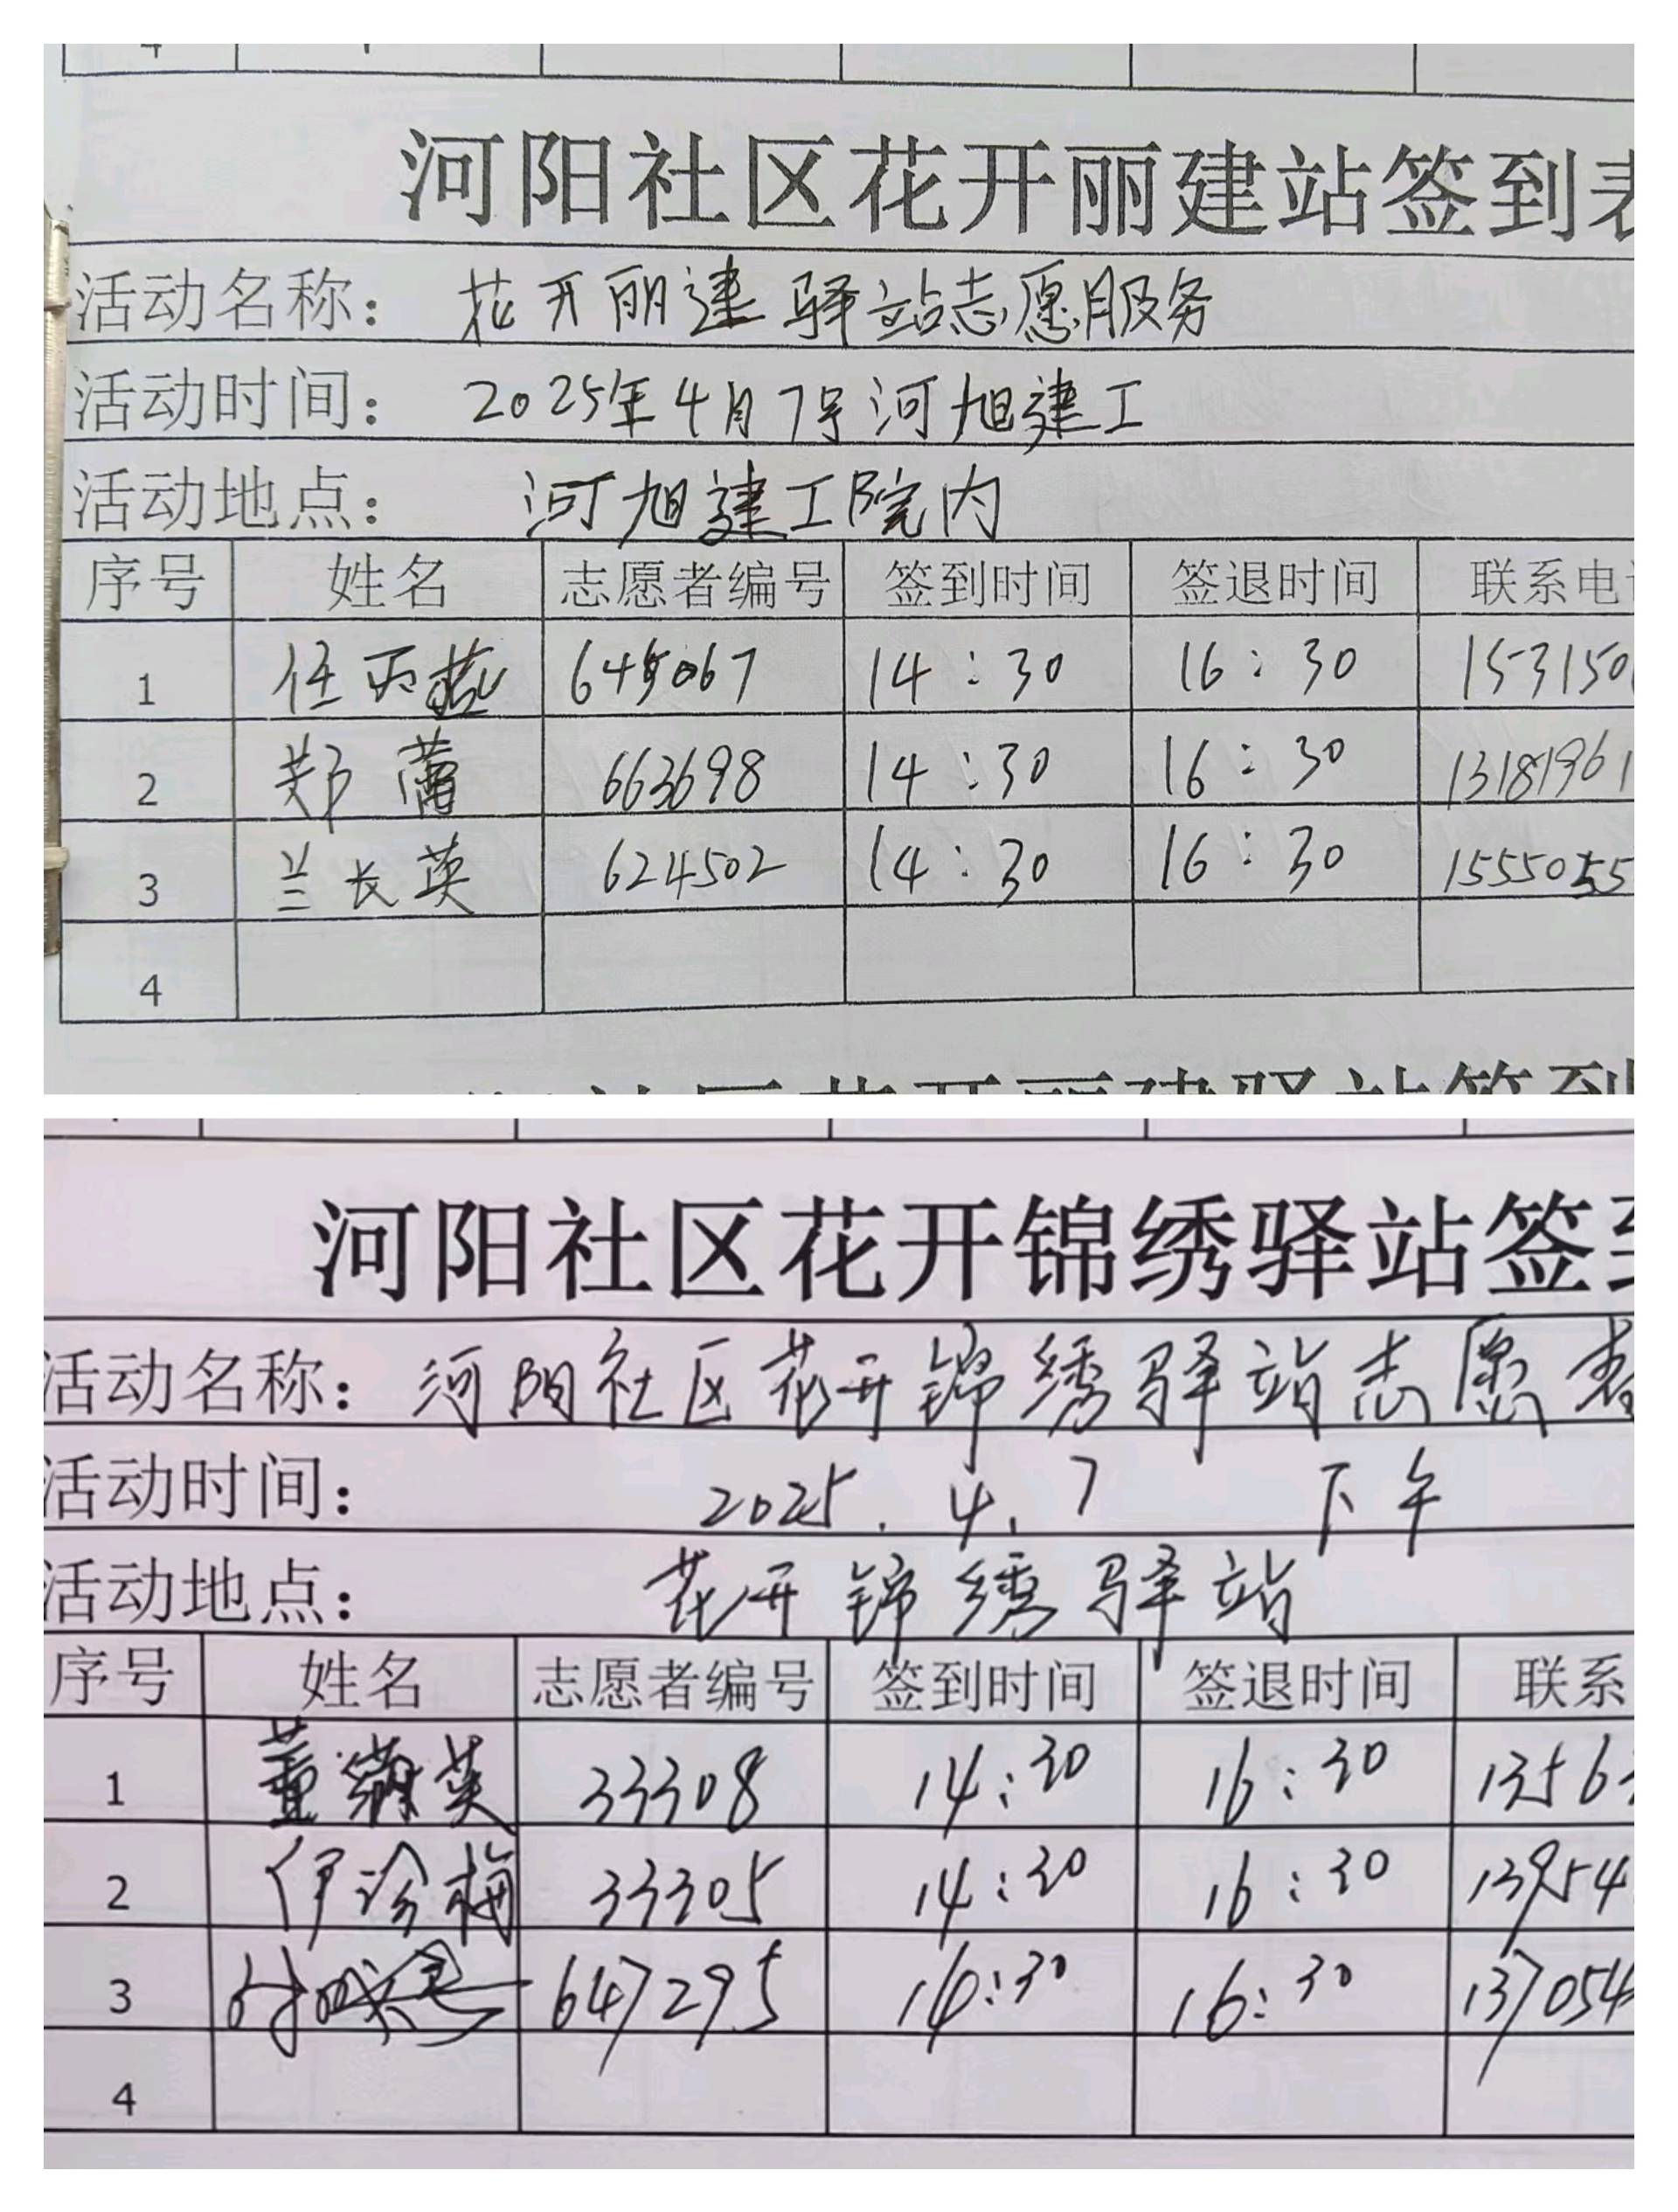 4
河阳社区花开丽建站签到表
活动名称： 花开丽建驿站志愿服务
活动时间： 2025年4月7号河旭建工
活动地点： 河旭建工院内
序号 姓名 志愿者编号 签到时间 签退时间 联系电
1 任丙燕 645067 14：30 16：30 153150
2 郑蕾 663698 14：30 16：30 13181961
3 兰长英 624502 14：30 16：30 1555055
4
社区花开丽建驿站签到
河阳社区花开锦绣驿站签到
活动名称： 河阳社区花开锦绣驿站志愿者
活动时间： 2025.4.7 下午
活动地点： 花开锦绣驿站
序号 姓名 志愿者编号 签到时间 签退时间 联系
1 董 英 33308 14：30 16：30 13563
2 伊珍梅 33305 14：30 16：30 13954
3 647295 14：30 16：30 137054
4